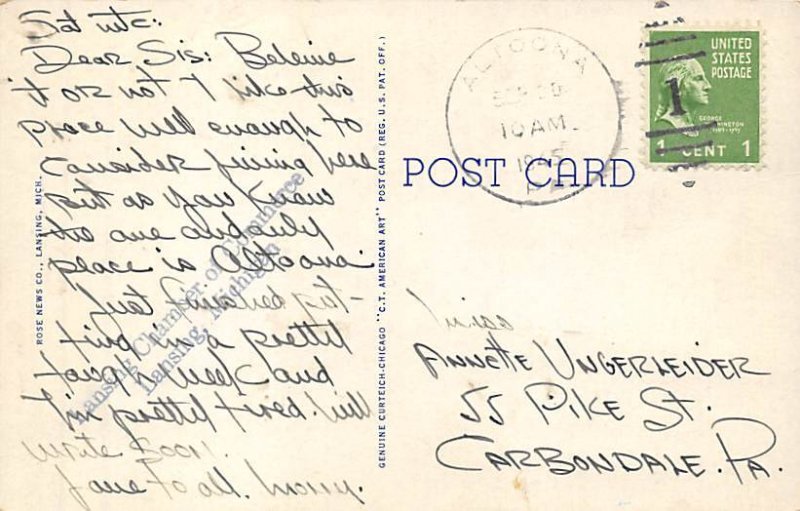 Sat nite:
Dear Sis: Beleive
it or not I like this
place well enough to
consider living here
but as you know
the one and only
place is Altoona.
Just finished put-
ting in a pretty
tough week and
I'm pretty tired. Will
write soon.
Love to all.
Lansing Chamber of Commerce
Lansing, Michigan
ROSE NEWS CO., LANSING, MICH.
GENUINE CURTEICH-CHICAGO "C.T. AMERICAN ART" POST CARD (REG. U.S. PAT. OFF.)
POST CARD
ALTOONA
10 AM
PA.
UNITED
STATES
POSTAGE
1
GEORGE
WASHINGTON
1 CENT 1
Miss
ANNETTE UNGERLEIDER
55 PIKE ST.
CARBONDALE, PA.